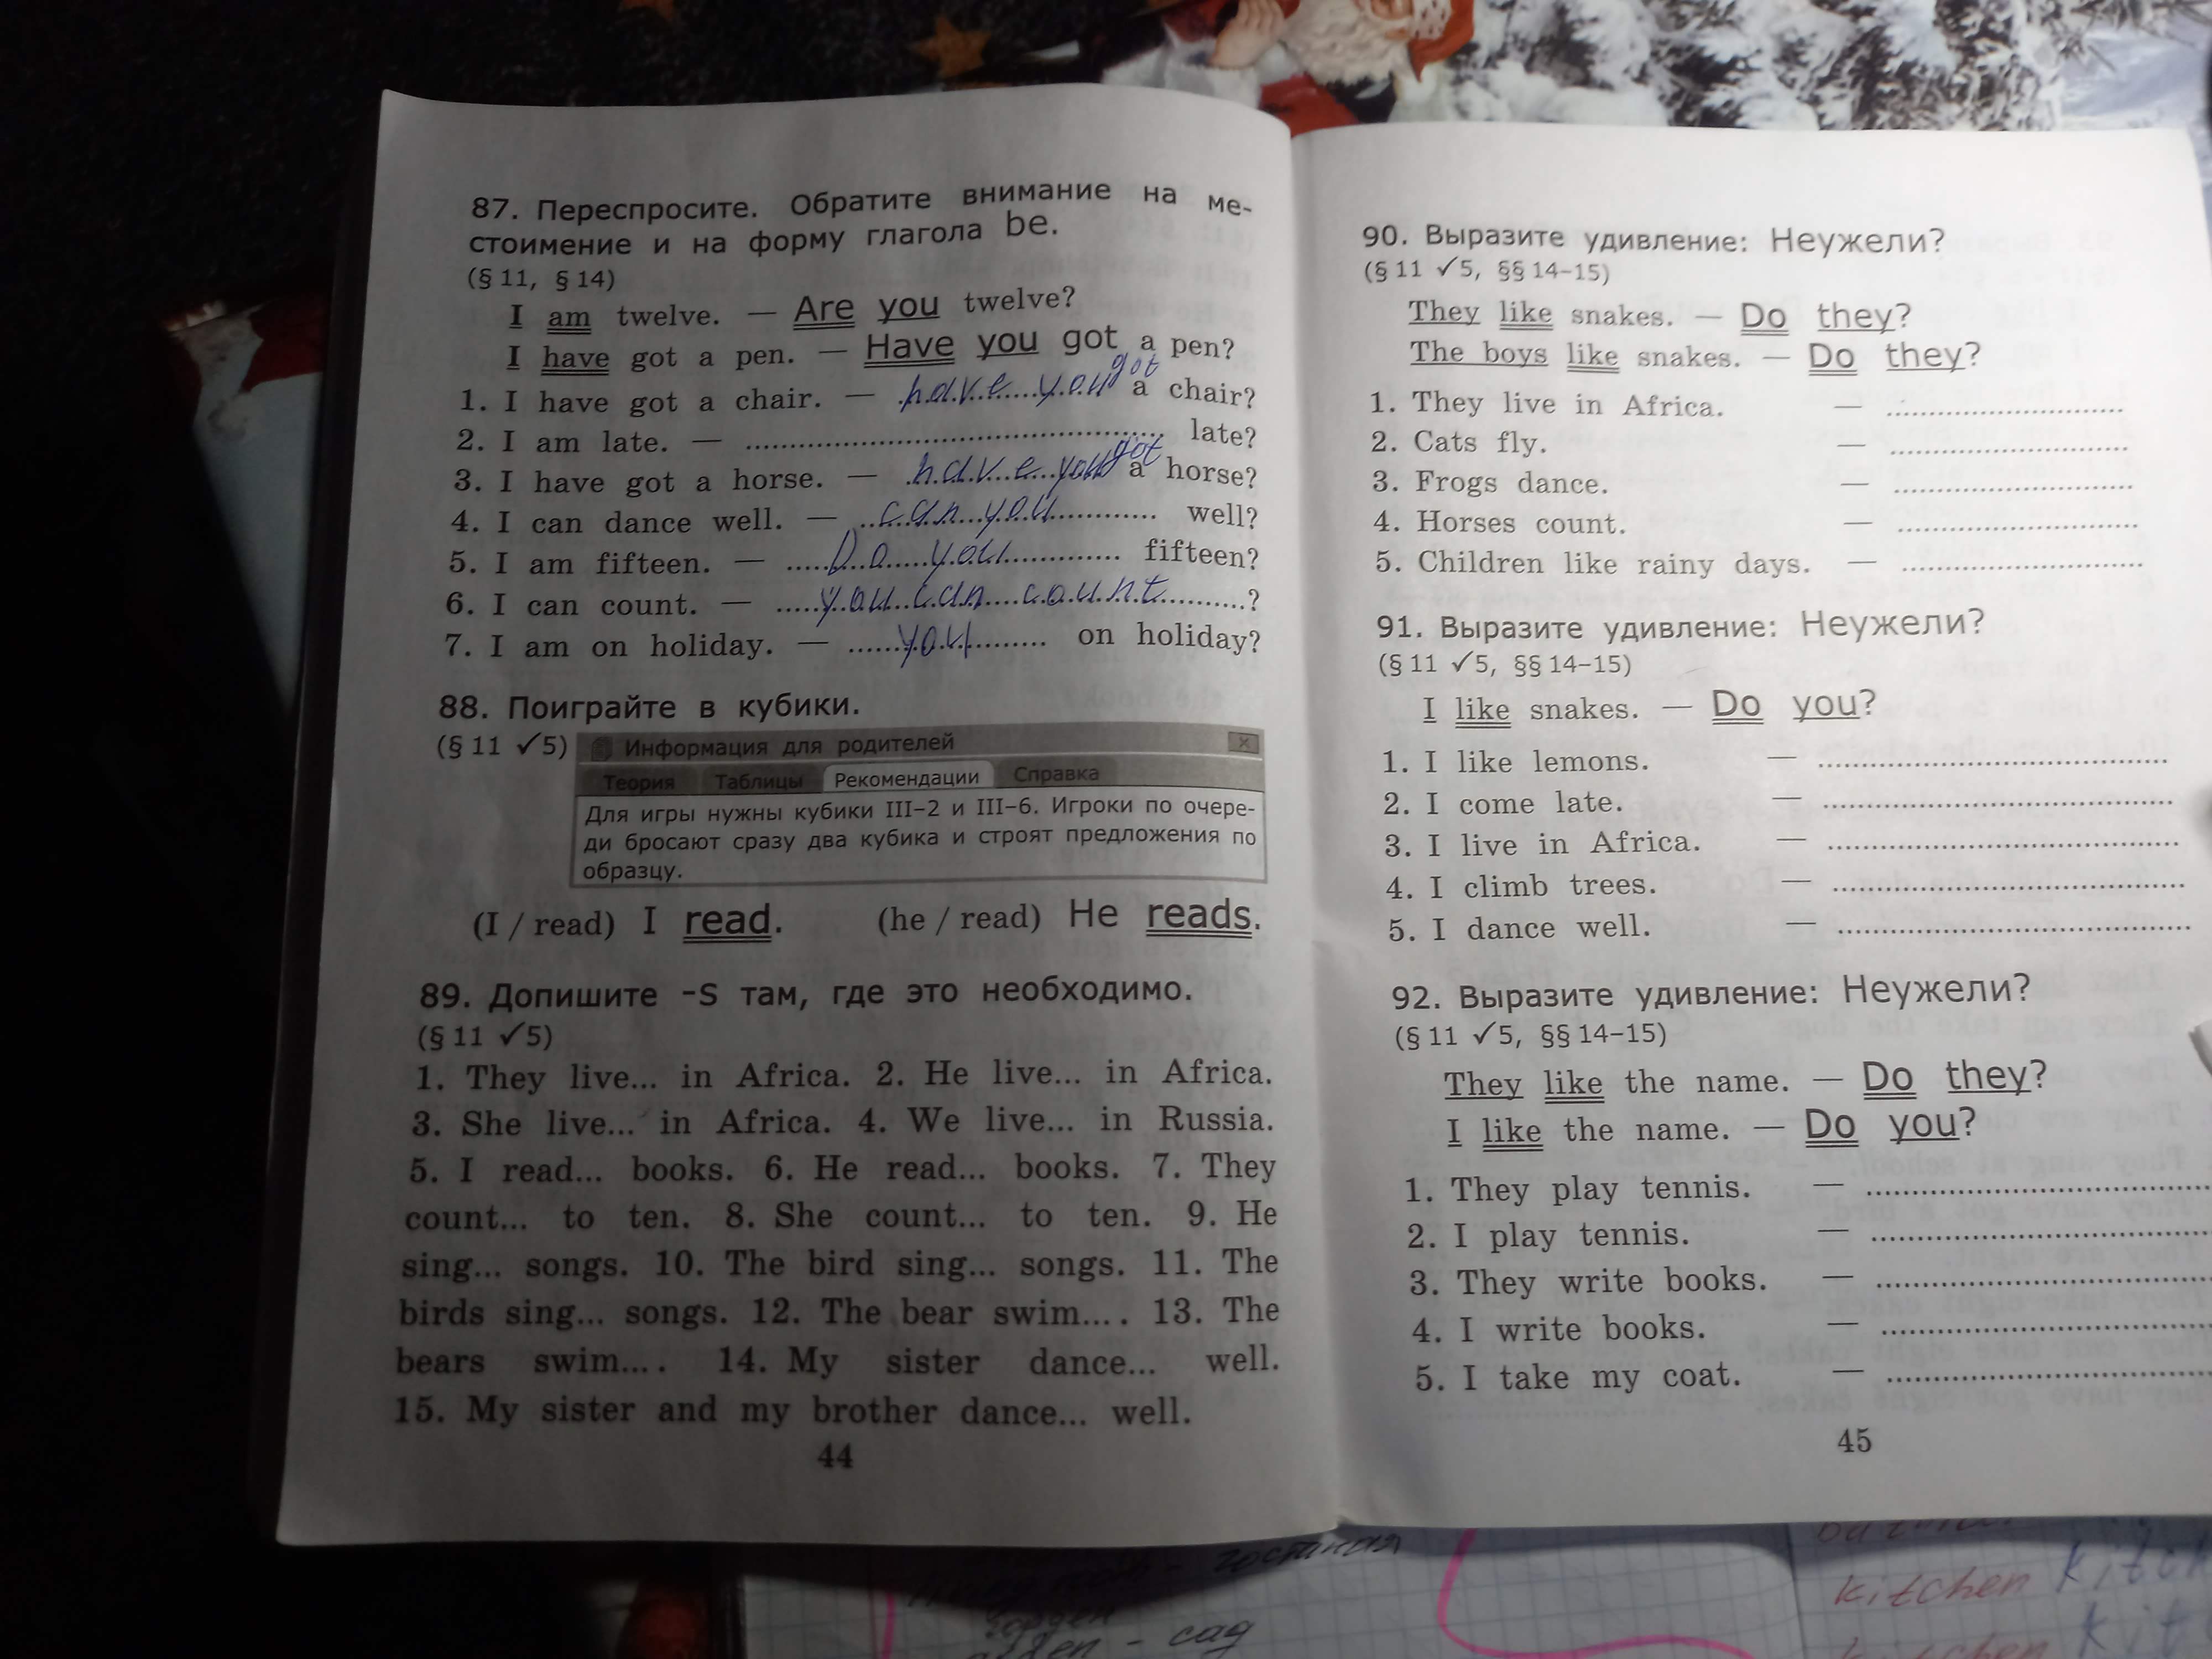 87. Переспросите. Обратите внимание на ме-
стоимение и на форму глагола be.
(§ 11, § 14)
I am twelve. — Are you twelve?
I have got a pen. — Have you got a pen?
1. I have got a chair. — have you got a chair?
2. I am late. — .......... late?
3. I have got a horse. — have you got a horse?
4. I can dance well. — can you .......... well?
5. I am fifteen. — Do you .......... fifteen?
6. I can count. — you can count ..........?
7. I am on holiday. — you .......... on holiday?
88. Поиграйте в кубики.
(§ 11 ✓5)
Информация для родителей
Теория Таблицы Рекомендации Справка
Для игры нужны кубики III–2 и III–6. Игроки по очере-
ди бросают сразу два кубика и строят предложения по
образцу.
(I / read) I read. (he / read) He reads.
89. Допишите -s там, где это необходимо.
(§ 11 ✓5)
1. They live... in Africa. 2. He live... in Africa.
3. She live... in Africa. 4. We live... in Russia.
5. I read... books. 6. He read... books. 7. They
count... to ten. 8. She count... to ten. 9. He
sing... songs. 10. The bird sing... songs. 11. The
birds sing... songs. 12. The bear swim... . 13. The
bears swim... . 14. My sister dance... well.
15. My sister and my brother dance... well.
44
90. Выразите удивление: Неужели?
(§ 11 ✓5, §§ 14–15)
They like snakes. — Do they?
The boys like snakes. — Do they?
1. They live in Africa. — ..........
2. Cats fly. — ..........
3. Frogs dance. — ..........
4. Horses count. — ..........
5. Children like rainy days. — ..........
91. Выразите удивление: Неужели?
(§ 11 ✓5, §§ 14–15)
I like snakes. — Do you?
1. I like lemons. — ..........
2. I come late. — ..........
3. I live in Africa. — ..........
4. I climb trees. — ..........
5. I dance well. — ..........
92. Выразите удивление: Неужели?
(§ 11 ✓5, §§ 14–15)
They like the name. — Do they?
I like the name. — Do you?
1. They play tennis. — ..........
2. I play tennis. — ..........
3. They write books. — ..........
4. I write books. — ..........
5. I take my coat. — ..........
45
гостиная
– сад
kitchen